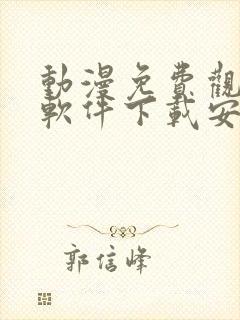 動漫免費觀
軟件下載安
郭信峰